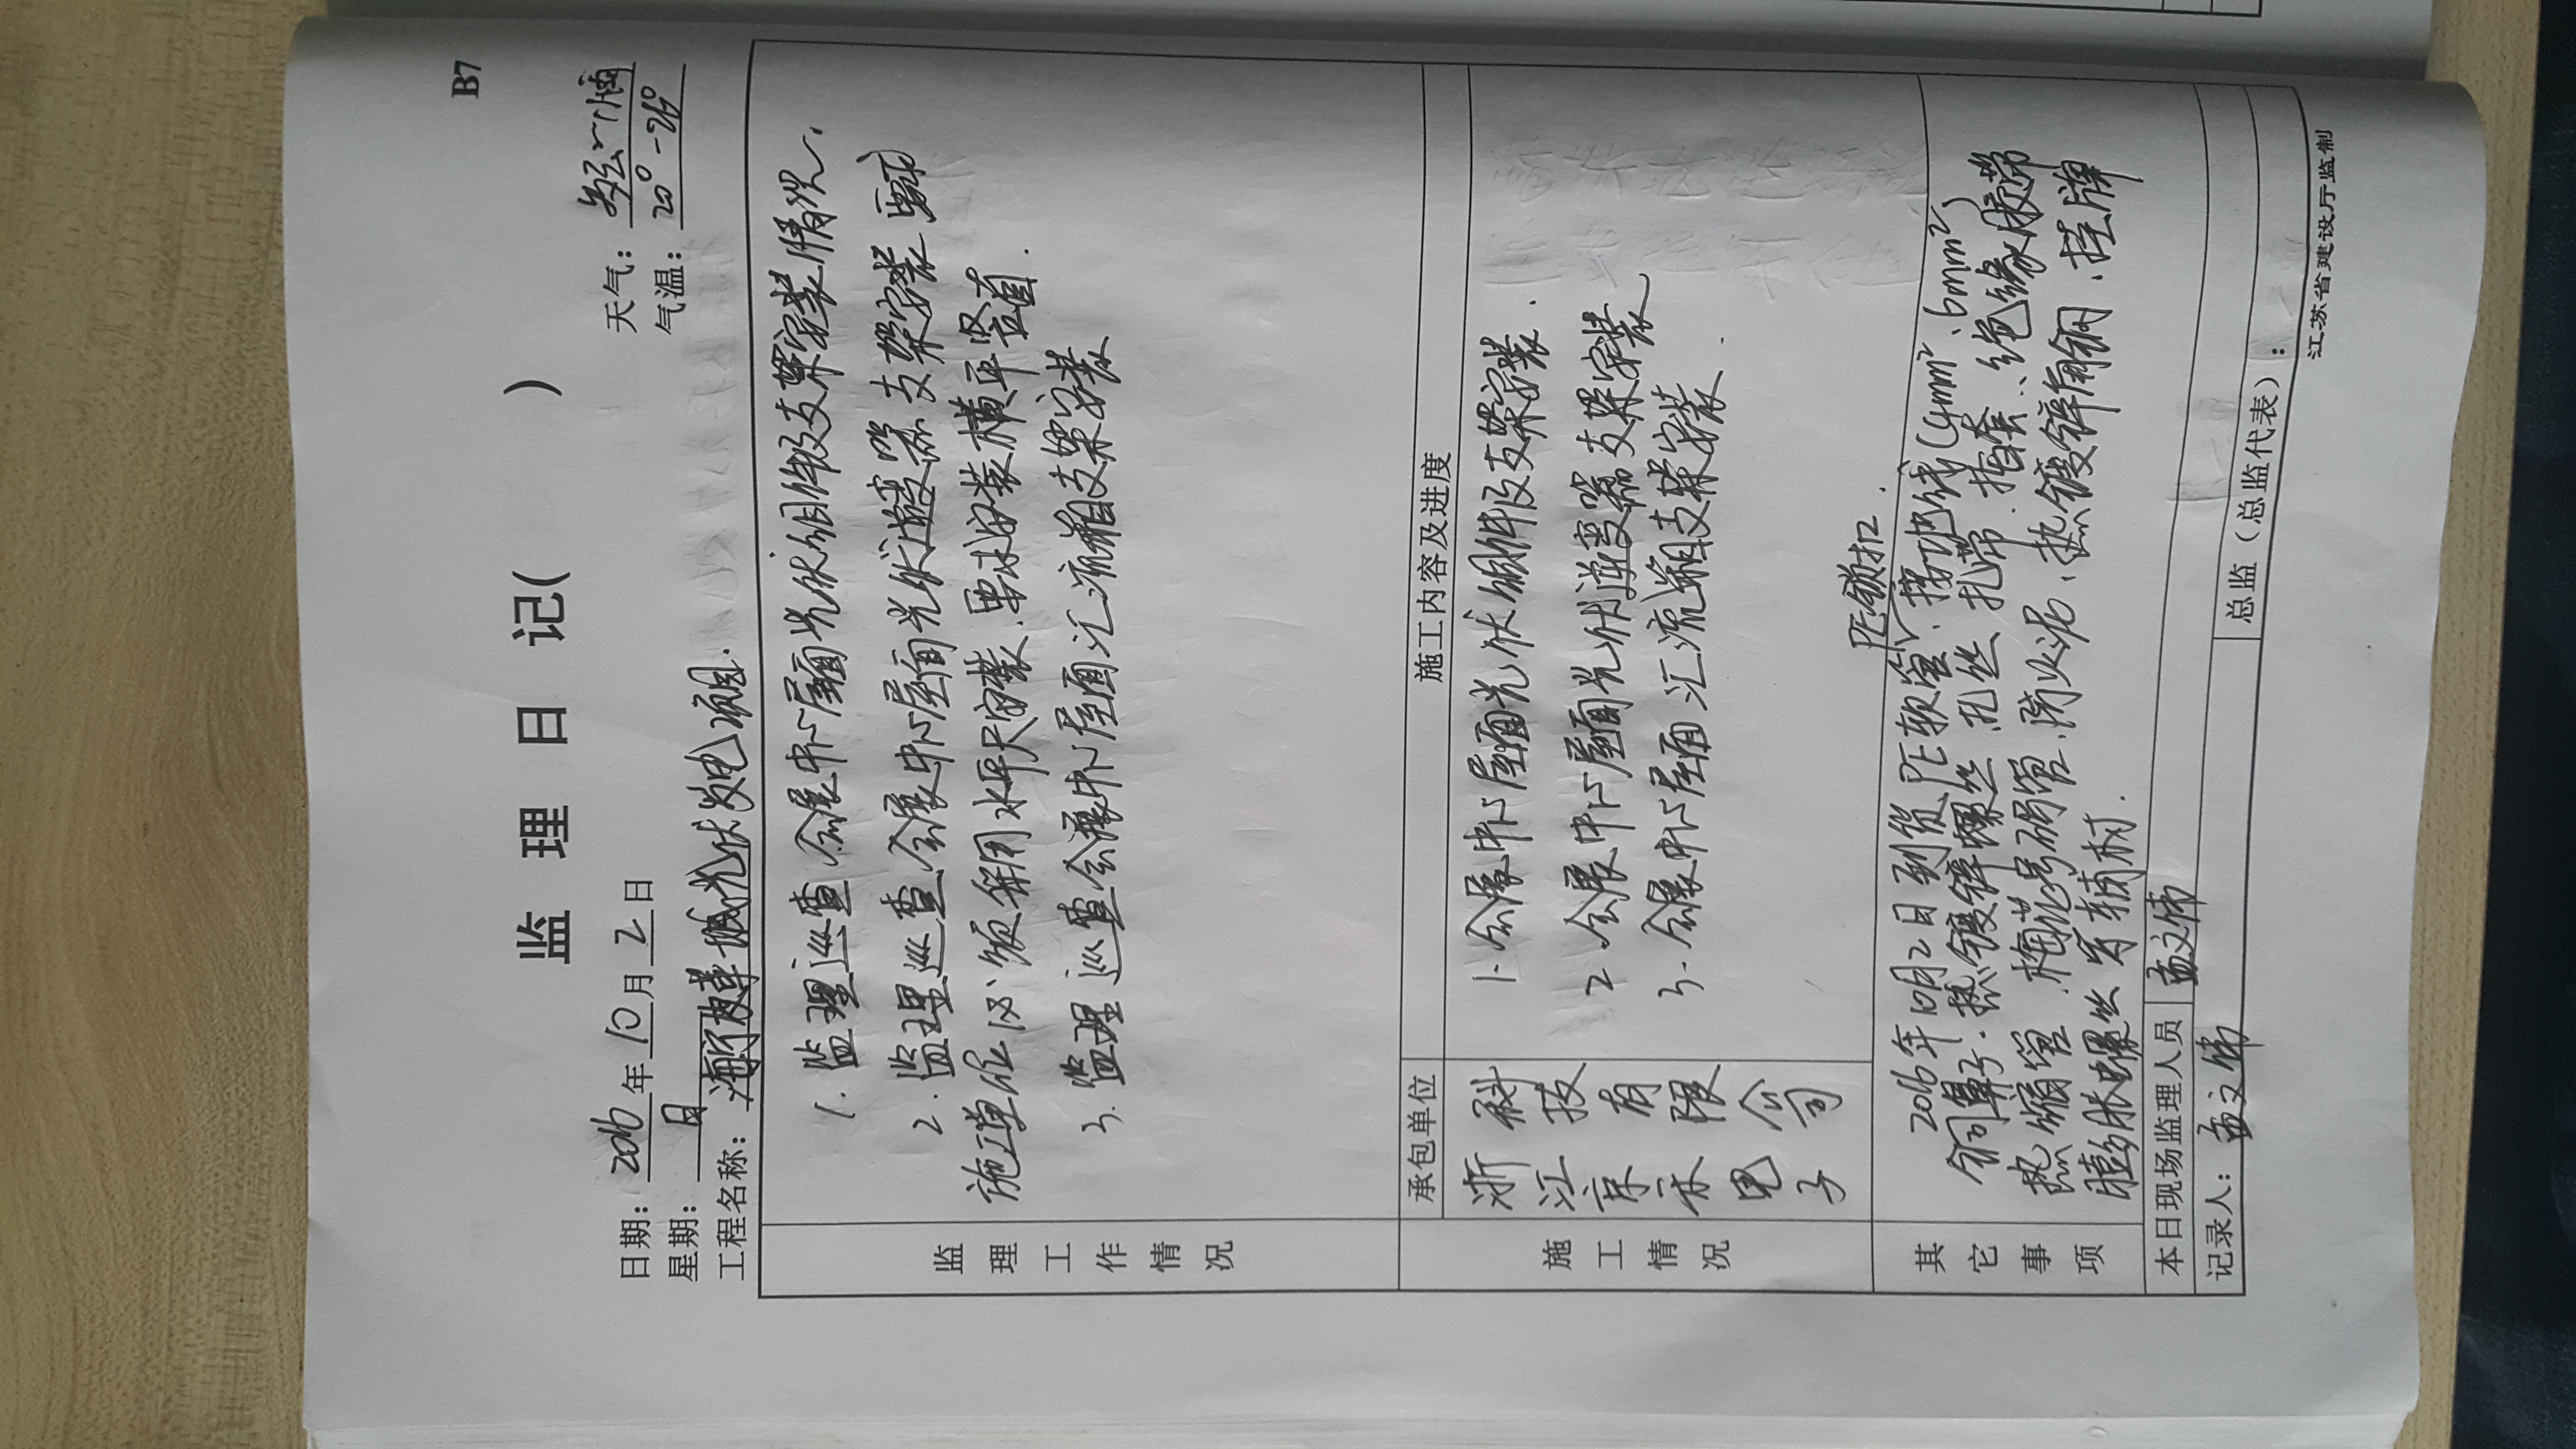 B7
监 理 日 记( )
日期：2016年10月2日 天气：多云~小雨
星期：日 气温：20°-26°
工程名称：海宁皮革城光伏发电项目.
监理工作情况
1. 监理巡查会展中心屋面光伏组件及支架安装情况.
2. 监理巡查会展中心屋面光伏逆变器支架安装
施工单位必须采用水平尺安装.要求安装横平竖直.
3. 监理巡查会展中心屋面汇流箱支架安装
施工情况
承包单位 施工内容及进度
浙江京禾电子
科技有限公司
1. 会展中心屋面光伏组件及支架安装.
2. 会展中心屋面光伏逆变器支架安装
3. 会展中心屋面汇流箱支架安装.
其它事项
PE锁扣.
2016年10月2日到货PE软管、接地线(4mm²、6mm²)
铜鼻子.热镀锌螺丝.扎丝.扎带.插套、绝缘胶带
热缩管.梅花号码管.防火泥、热镀锌角钢.挂牌
膨胀螺丝等辅材.
本日现场监理人员 孟文伟
记录人：孟文伟 总监（总监代表）：
江苏省建设厅监制